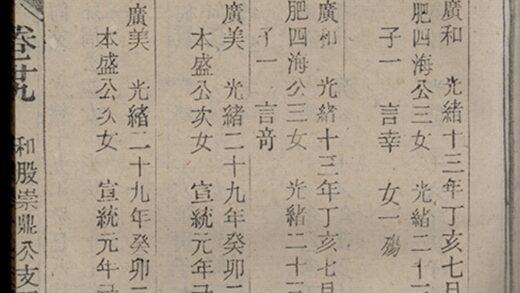 廣和　光緒十三年丁亥七月
肥四海公三女　光緒二十
子一　言幸　女一殤
廣和　光緒十三年丁亥七月
肥四海公三女　光緒二十三
子一　言奇
廣美　光緒二十九年癸卯二
本盛公次女　宣統元年己
廣美　光緒二十九年癸卯二
本盛公次女　宣統元年
卷之廿九　和股崇鼎公支